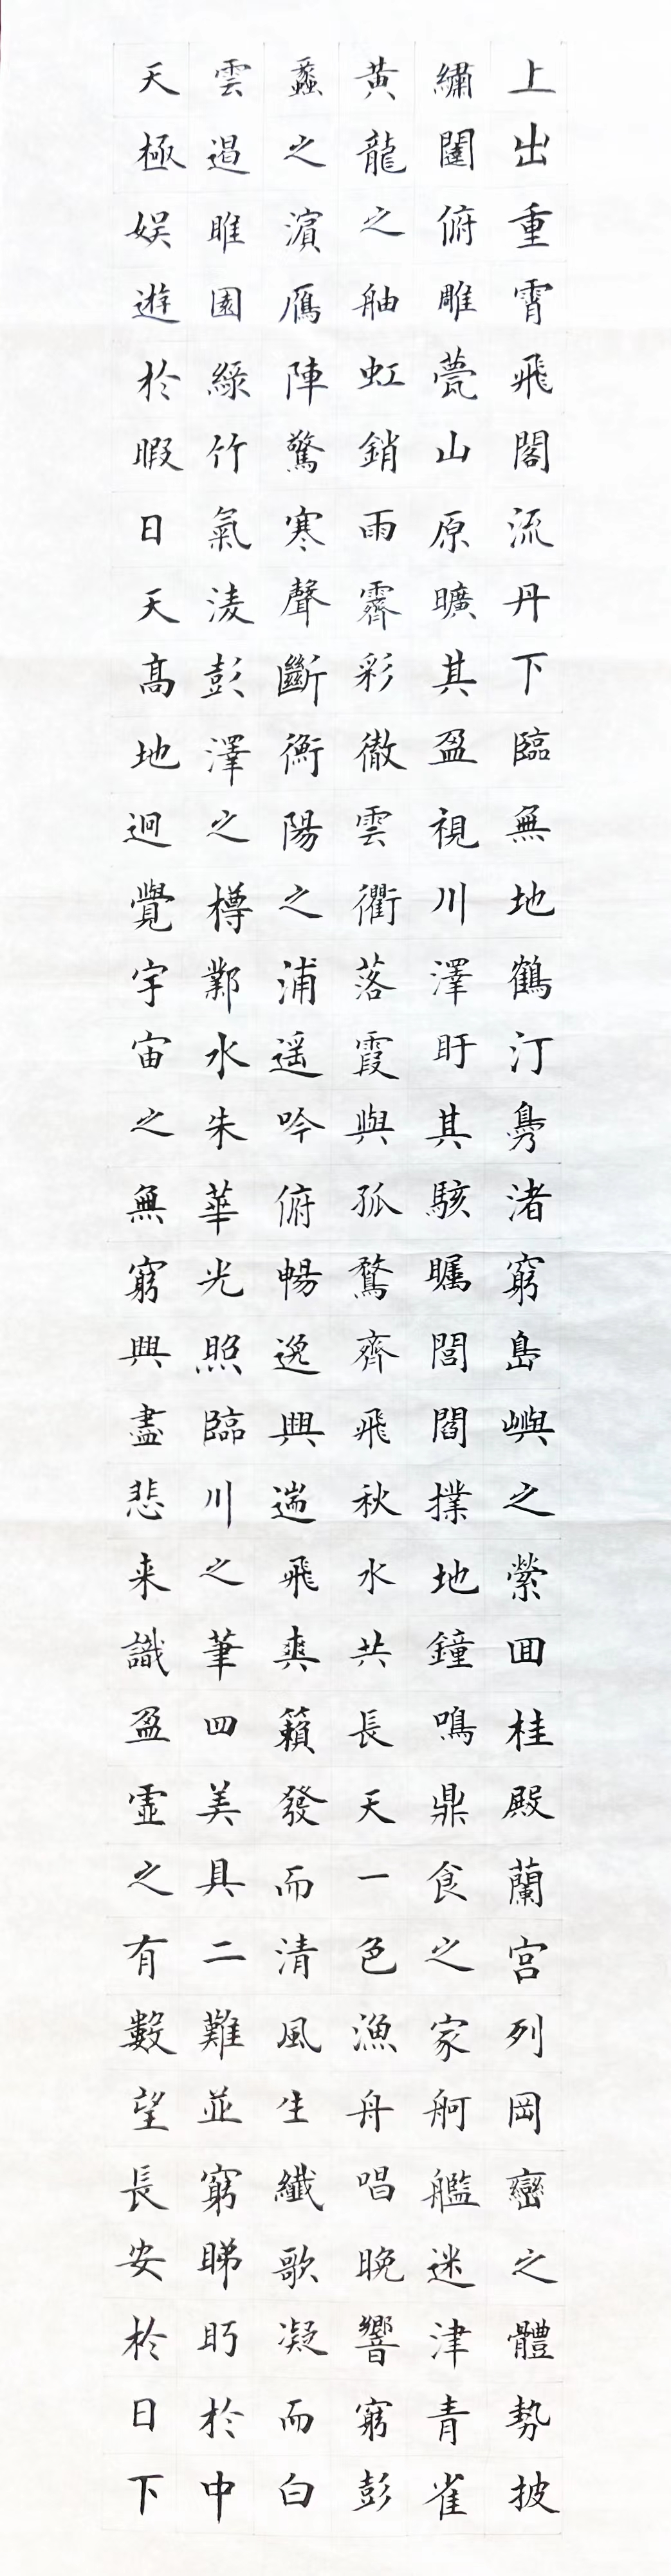 上出重霄飛閣流丹下臨無地鶴汀鳧渚窮島嶼之縈囬桂殿蘭宮列岡巒之體勢披
繡闥俯雕甍山原曠其盈視川澤盱其駭矚閭閻撲地鐘鳴鼎食之家舸艦迷津青雀
黃龍之舳虹銷雨霽彩徹雲衢落霞與孤鶩齊飛秋水共長天一色漁舟唱晚響窮彭
蠡之濱鴈陣驚寒聲斷衡陽之浦遥吟俯暢逸興遄飛爽籟發而清風生纖歌凝而白
雲遏睢園綠竹氣淩彭澤之樽鄴水朱華光照臨川之筆四美具二難並窮睇眄於中
天極娛遊於暇日天高地迥覺宇宙之無窮興盡悲来識盈虛之有數望長安於日下